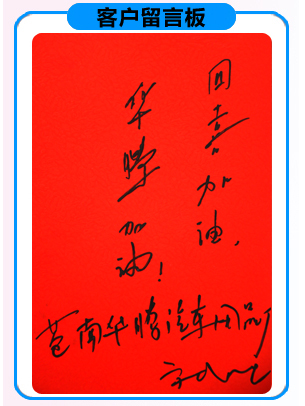 客户留言板
回喜加油,
华腾加油!
苍南华腾汽车用品厂